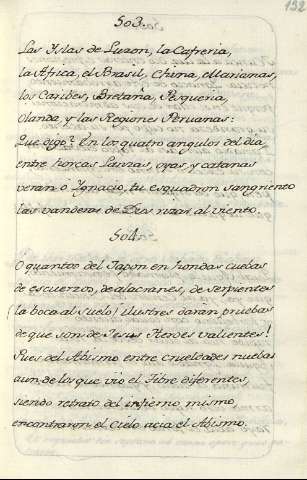 132
503.
Las Yslas de Luzon, la Cafreria,
la Africa, el Brasil, China, Marianas,
los Caribes, Bretaña, Pequena,
Olanda, y las Regiones Peruanas:
Que digo? En los quatro angulos del dia
entre horcas Lanzas, oyas, y catanas
veran o Ygnacio, tu esquadron sangriento
las vanderas de Dios rizar al viento.
504.
O quantos del Japon en hondas cuebas
de escuerzos, de alacranes, de serpientes
(la boca al suelo) ilustres daran pruebas
de que son de Jesus Heroes valientes!
Pues del Abismo entre crueldades nuebas
aun de los que vio el Tibre diferentes,
siendo retrato del infierno mismo
encontraron el Cielo acia el Abismo.